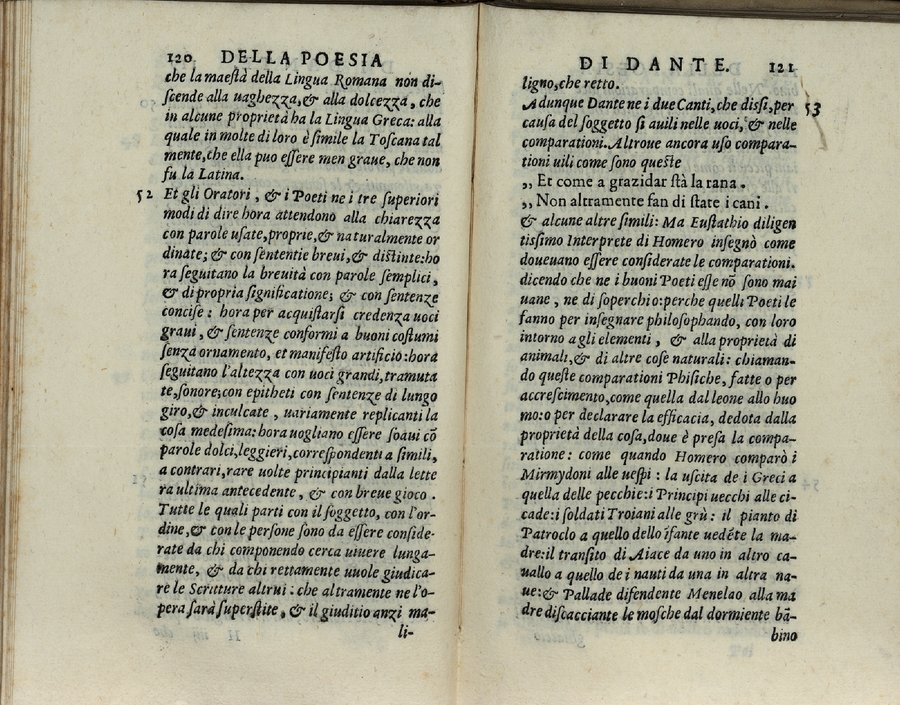 120 DELLA POESIA
che la maeſtà della Lingua Romana non di-
ſcende alla uaghezza,& alla dolcezza, che
in alcune proprietà ha la Lingua Greca: alla
quale in molte di loro è ſimile la Toſcana tal
mente,che ella puo eſſere men graue, che non
fu la Latina.
52 Et gli Oratori, & i Poeti ne i tre ſuperiori
modi di dire hora attendono alla chiarezza
con parole uſate,proprie,& naturalmente or
dinate; & con ſententie breui,& diſtinte:ho
ra ſeguitano la breuità con parole ſemplici,
& di propria ſignificatione; & con ſentenze
conciſe: hora per acquiſtarſi credenza uoci
graui, & ſentenze conformi a buoni coſtumi
ſenza ornamento, et manifeſto artificio:hora
ſeguitano l'altezza con uoci grandi,tramuta
te,ſonore;con epitheti con ſentenze di lungo
giro,& inculcate, uariamente replicanti la
coſa medeſima:hora uogliano eſſere ſoaui cō
parole dolci,leggieri,correſpondenti a ſimili,
a contrari,rare uolte principianti dalla lette
ra ultima antecedente, & con breue gioco.
Tutte le quali parti con il ſoggetto, con l'or-
dine,& con le perſone ſono da eſſere conſide-
rate da chi componendo cerca uiuere lunga-
mente, & da chi rettamente uuole giudica-
re le Scritture altrui: che altramente ne l'o-
pera ſarà ſuperſtite, & il giuditio anzi ma-
li-
DI DANTE. 121
ligno,che retto.
Adunque Dante ne i due Canti,che diſſi,per 53
cauſa del ſoggetto ſi auili nelle uoci, & nelle
comparationi. Altroue ancora uſo compara-
tioni uili come ſono queſte
,, Et come a grazidar ſtà la rana.
,, Non altramente fan di ſtate i cani.
& alcune altre ſimili: Ma Euſtathio diligen
tiſſimo Interprete di Homero inſegnò come
doueuano eſſere conſiderate le comparationi.
dicendo che ne i buoni Poeti eſſe nō ſono mai
uane, ne di ſoperchio:perche quelli Poeti le
fanno per inſegnare philoſophando, con loro
intorno a gli elementi, & alla proprietà di
animali,& di altre coſe naturali: chiaman-
do queſte comparationi Phiſiche, fatte o per
accreſcimento,come quella dal leone allo huo
mo:o per declarare la efficacia, dedota dalla
proprietà della coſa,doue è preſa la compa-
ratione: come quando Homero comparò i
Mirmydoni alle ueſpi: la uſcita de i Greci a
quella delle pecchie:i Principi uecchi alle ci-
cade:i ſoldati Troiani alle grù: il pianto di
Patroclo a quello dello īfante uedēte la ma-
dre:il tranſito di Aiace da uno in altro ca-
uallo a quello de i nauti da una in altra na-
ue:& Pallade difendente Menelao alla ma
dre diſcacciante le moſche dal dormiente bā-
bino